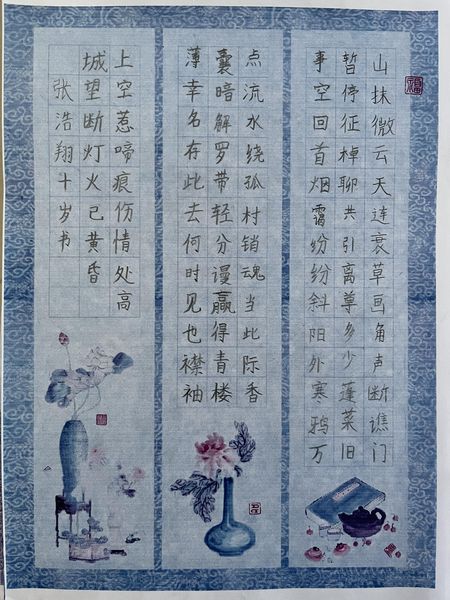 山抹微云天连衰草画角声断谯门
暂停征棹聊共引离尊多少蓬莱旧
事空回首烟霭纷纷斜阳外寒鸦万
点流水绕孤村销魂当此际香
囊暗解罗带轻分谩赢得青楼
薄幸名存此去何时见也襟袖
上空惹啼痕伤情处高
城望断灯火已黄昏
张浩翔十岁书